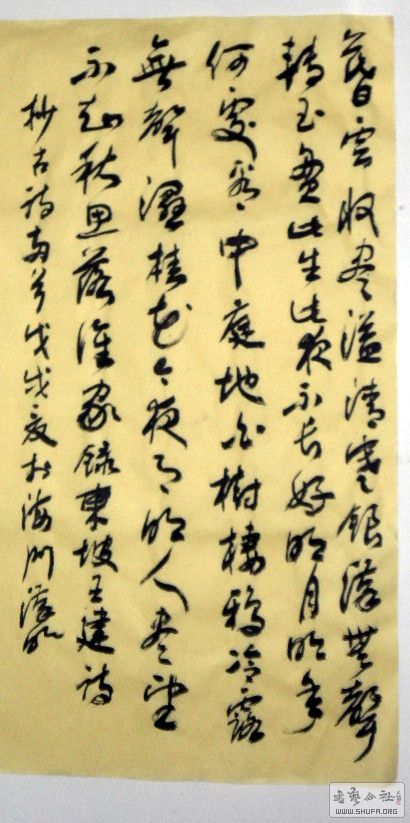 暮雲收盡溢清寒銀漢無聲
轉玉盤此生此夜不長好明月明年
何處看中庭地白樹棲鴉冷露
無聲濕桂花今夜月明人盡望
不知秋思落誰家錄東坡王建詩
抄古詩兩首戊戌夏於海門
书艺公社
WWW.SHUFA.ORG